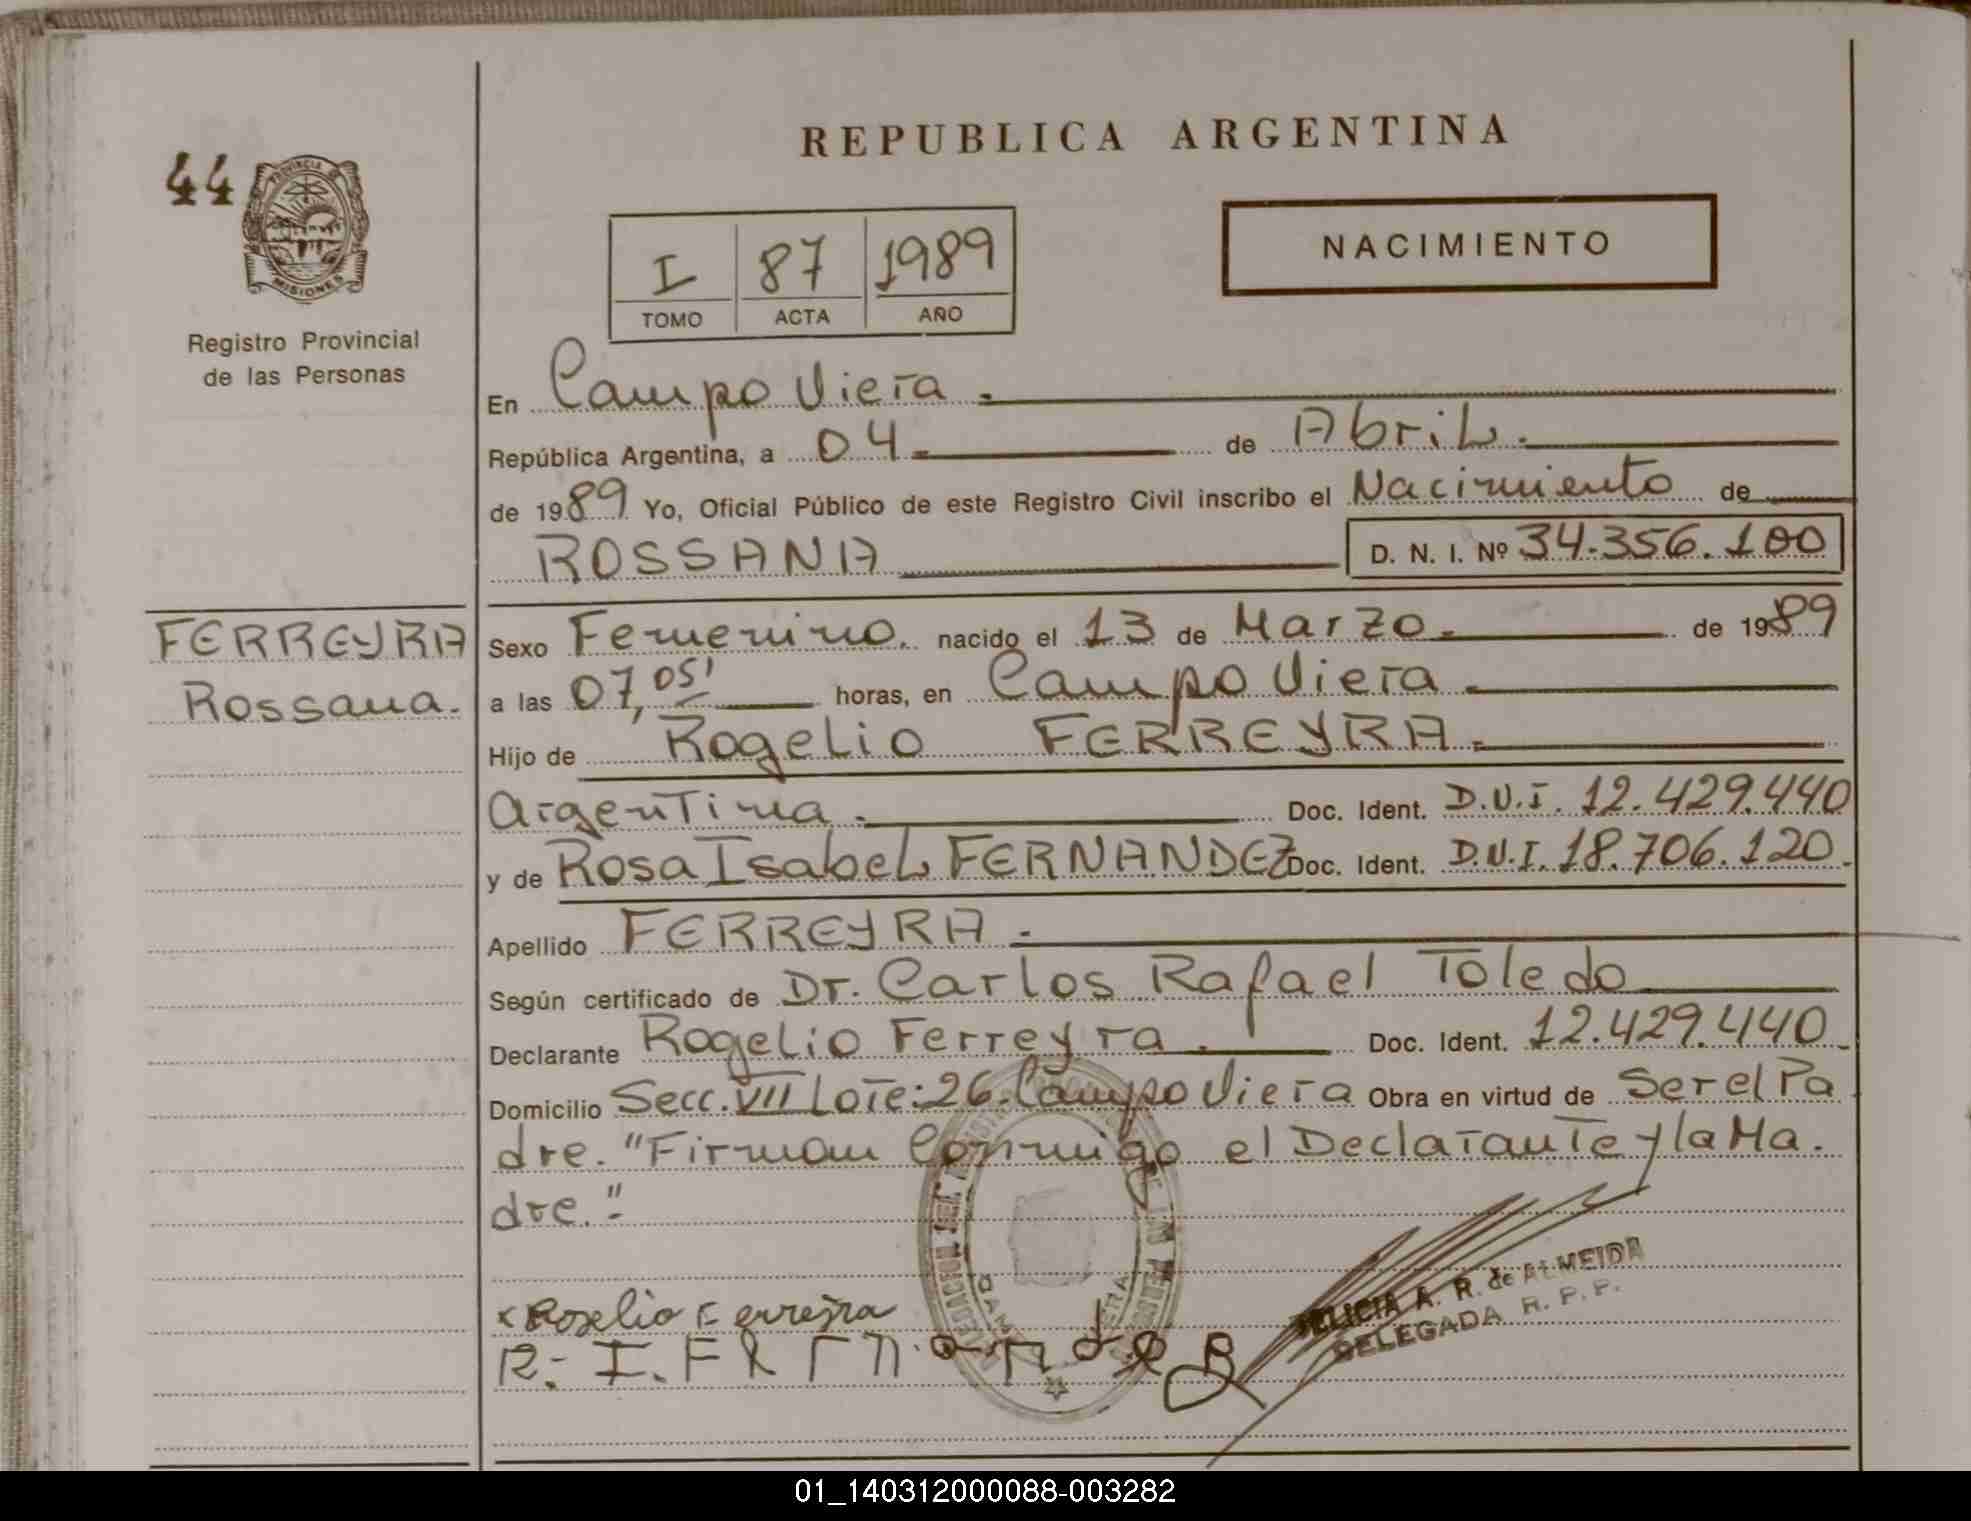 REPUBLICA ARGENTINA
44
PROVINCIA DE
MISIONES
Registro Provincial
de las Personas
I 87 1989
TOMO ACTA AÑO
NACIMIENTO
En Campo Viera.
República Argentina, a 04 de Abril.
de 1989 Yo, Oficial Público de este Registro Civil inscribo el Nacimiento de
ROSSANA D. N. I. Nº 34.356.100
FERREYRA
Rossana.
Sexo Femenino. nacido el 13 de Marzo. de 1989
a las 07,05' horas, en Campo Viera
Hijo de Rogelio FERREYRA.
Argentina. Doc. Ident. D.N.I. 12.429.440
y de Rosa Isabel FERNANDEZ Doc. Ident. D.N.I. 18.706.120.
Apellido FERREYRA.
Según certificado de Dr. Carlos Rafael Toledo
Declarante Rogelio Ferreyra. Doc. Ident. 12.429.440.
Domicilio Secc. VII Lote: 26. Campo Viera Obra en virtud de Ser el Pa
dre. "Firman Conmigo el Declarante y la Ma.
dre."
Rogelio Ferreira
R. I. Fernandez
FELICIA A. R. de ALMEIDA
DELEGADA R. P. P.
01_140312000088-003282